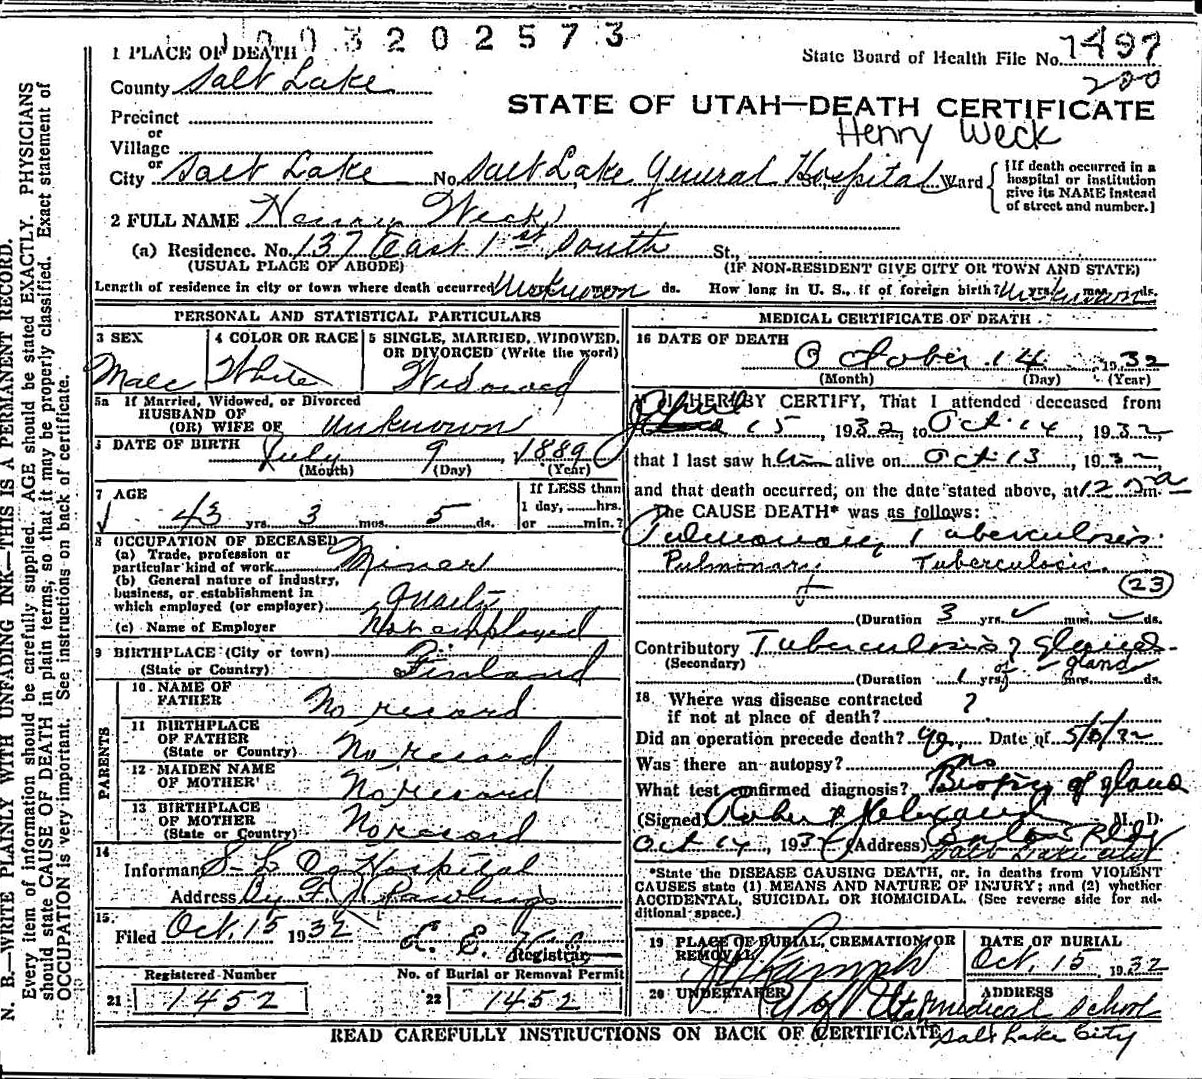 1003202573
1 PLACE OF DEATH
State Board of Health File No. 1497
200
County Salt Lake
STATE OF UTAH—DEATH CERTIFICATE
Precinct
Henry Weck
or
Village
or
City Salt Lake No. Salt Lake General Hospital St., Ward
[If death occurred in a hospital or institution give its NAME instead of street and number.]
2 FULL NAME Henry Weck
(a) Residence. No. 137 East 1st South St.,
(USUAL PLACE OF ABODE) (IF NON-RESIDENT GIVE CITY OR TOWN AND STATE)
Length of residence in city or town where death occurred Unknown ds. How long in U. S., if of foreign birth? Unknown yrs. mos. ds.
PERSONAL AND STATISTICAL PARTICULARS
3 SEX 4 COLOR OR RACE 5 SINGLE, MARRIED, WIDOWED,
OR DIVORCED (Write the word)
Male White Widowed
5a If Married, Widowed, or Divorced
HUSBAND OF
(OR) WIFE OF Unknown
DATE OF BIRTH July 9 1889
(Month) (Day) (Year)
7 AGE If LESS than
1 day, hrs.
43 yrs. 3 mos. 5 ds. or min.?
8 OCCUPATION OF DECEASED
(a) Trade, profession or
particular kind of work Miner
(b) General nature of industry,
business, or establishment in
which employed (or employer)
(c) Name of Employer Not employed
9 BIRTHPLACE (City or town)
(State or Country) Finland
PARENTS
10 NAME OF
FATHER No record
11 BIRTHPLACE
OF FATHER
(State or Country) No record
12 MAIDEN NAME
OF MOTHER No record
13 BIRTHPLACE
OF MOTHER
(State or Country) No record
14
Informant S. L. Co Hospital
Address By F. J. Rawlings
15.
Filed Oct. 15 1932
Registrar
Registered Number No. of Burial or Removal Permit
21 1452 22 1452
MEDICAL CERTIFICATE OF DEATH
16 DATE OF DEATH
October 14 1932
(Month) (Day) (Year)
I HEREBY CERTIFY, That I attended deceased from
April 15, 1932, to Oct. 14, 1932,
that I last saw him alive on Oct. 13, 1932,
and that death occurred, on the date stated above, at m.
The CAUSE DEATH* was as follows:
Pulmonary Tuberculosis
Pulmonary Tuberculosis
23
(Duration 3 yrs. mos. ds.
Contributory Tuberculosis of
(Secondary) of gland
(Duration 1 yrs. mos. ds.
18 Where was disease contracted
if not at place of death? ?
Did an operation precede death? yes Date of
Was there an autopsy? no
What test confirmed diagnosis? Biopsy of gland
(Signed) M. D.
Oct 14, 1932 (Address) Bldg
Salt Lake City
*State the DISEASE CAUSING DEATH, or, in deaths from VIOLENT
CAUSES state (1) MEANS AND NATURE OF INJURY; and (2) whether
ACCIDENTAL, SUICIDAL OR HOMICIDAL. (See reverse side for ad-
ditional space.)
19 PLACE OF BURIAL, CREMATION OR
REMOVAL
DATE OF BURIAL
Oct. 15 1932
20 UNDERTAKER ADDRESS
U of Utah Medical School
Salt Lake City
READ CAREFULLY INSTRUCTIONS ON BACK OF CERTIFICATE
N. B.—WRITE PLAINLY WITH UNFADING INK—THIS IS A PERMANENT RECORD.
Every item of information should be carefully supplied. AGE should be stated EXACTLY. PHYSICIANS
should state CAUSE OF DEATH in plain terms, so that it may be properly classified. Exact statement of
OCCUPATION is very important. See instructions on back of certificate.